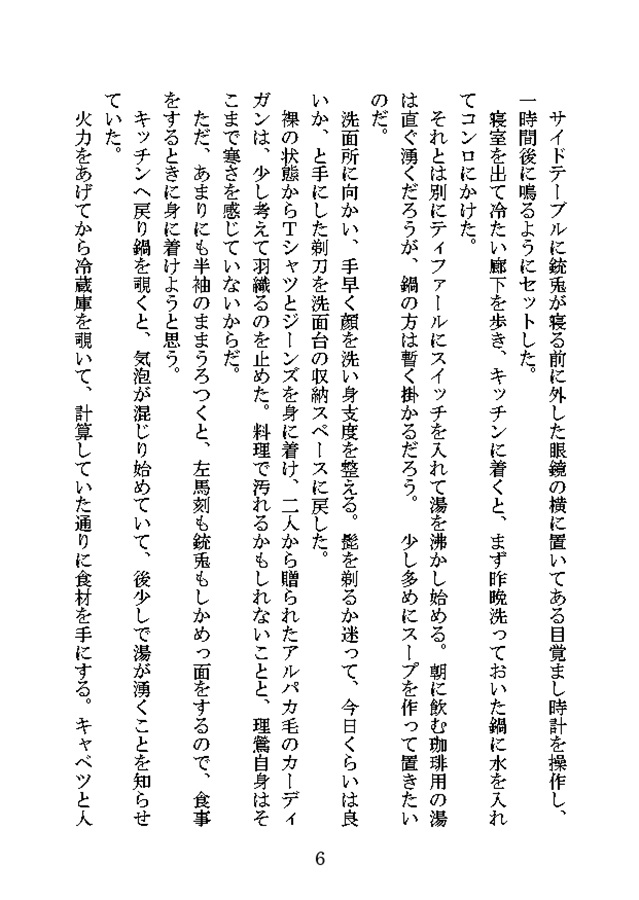 サイドテーブルに銃兎が寝る前に外した眼鏡の横に置いてある目覚まし時計を操作し、
一時間後に鳴るようにセットした。
寝室を出て冷たい廊下を歩き、キッチンに着くと、まず昨晩洗っておいた鍋に水を入れ
てコンロにかけた。
それとは別にティファールにスイッチを入れて湯を沸かし始める。朝に飲む珈琲用の湯
は直ぐ湧くだろうが、鍋の方は暫く掛かるだろう。　少し多めにスープを作って置きたい
のだ。
洗面所に向かい、手早く顔を洗い身支度を整える。髭を剃るか迷って、今日くらいは良
いか、と手にした剃刀を洗面台の収納スペースに戻した。
裸の状態からＴシャツとジーンズを身に着け、二人から贈られたアルパカ毛のカーディ
ガンは、少し考えて羽織るのを止めた。料理で汚れるかもしれないことと、理鶯自身はそ
こまで寒さを感じていないからだ。
ただ、あまりにも半袖のままうろつくと、左馬刻も銃兎もしかめっ面をするので、食事
をするときに身に着けようと思う。
キッチンへ戻り鍋を覗くと、気泡が混じり始めていて、後少しで湯が湧くことを知らせ
ていた。
火力をあげてから冷蔵庫を覗いて、計算していた通りに食材を手にする。キャベツと人
6